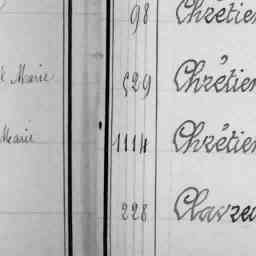 98 Chrétien
Marie 529 Chrétien
Marie 1114 Chrétien
228